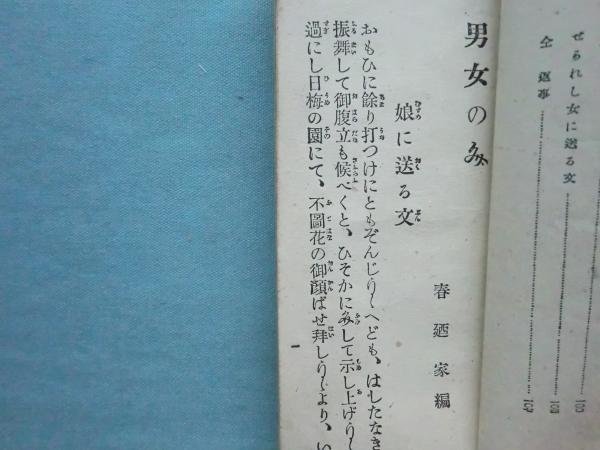 せられし女に送る文 ……… 100
仝 返事 ………
男女のふみ
春廼家編
娘に送る文
おもひに餘り打つけにともぞんじり〳〵へども、はしたなき
振舞して御腹立も候べくと、ひそかにふみして示し上げり〳〵
過にし日梅の園にて、不圖花の御顔ばせ拜しり〳〵より、い